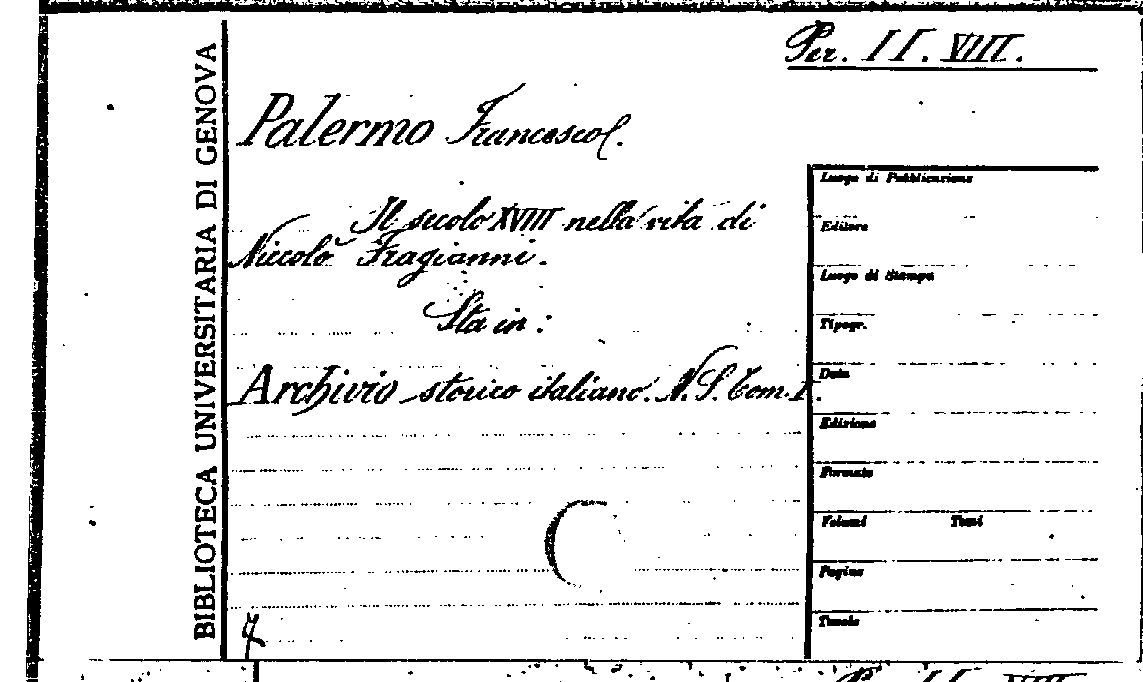 Per. II. VIII.
BIBLIOTECA UNIVERSITARIA DI GENOVA
Palermo Francesco.
Il secolo XVIII nella vita di
Niccolò Fragianni.
Sta in:
Archivio storico italiano. N. S. Tom. I.
Luogo di Pubblicazione
Editore
Luogo di Stampa
Tipogr.
Data
Edizione
Formato
Volumi Tomi
Pagine
Tavole